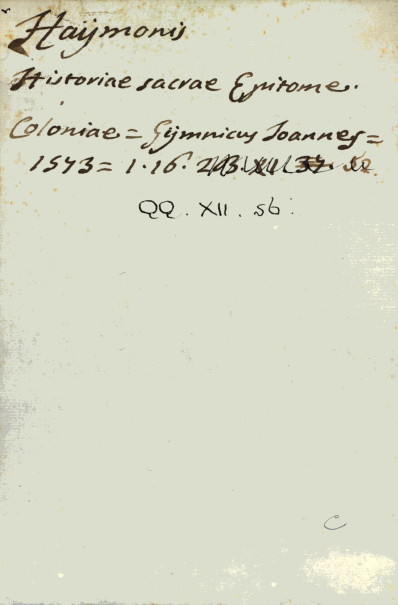 Haijmonis
Historiae sacrae Epitome.
Coloniae = Gijmnicus Joannes =
1573 = 1. 16.
QQ. XII. 56.
C